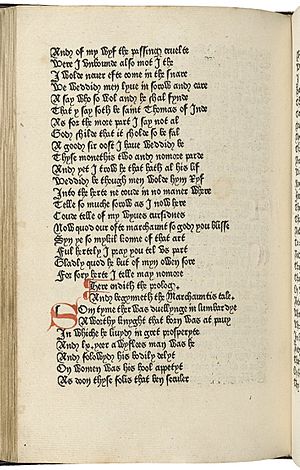 And of my wyf the passing cruelte
Were I unbounde also mot I the
I wolde never efte come in the snare
We weddid men lyue in sorow and care
A say who so wol and he shal fynde
That y say soth be saint Thomas of Inde
As for the more part I say not al
God shilde that it sholde so be fal
A good sir oost I haue weddid be
Thyse monethis two and nomore parde
And yet I trow he that hath al his lif
Weddid be though men wolde hym ryf
In to the herte ne coude in no maner where
Telle so muche sorow as I now here
Coude telle of my wyues cursidnes
Now quod our oste marchaunt so god you blisse
Syn ye so mykil konne of that art
Ful hertely I pray you tel vs part
Gladly quod he but of myn owen sore
For sory herte I telle may nomore
Here endith the prolog
And begynneth the Marchauntis tale
Som tyme ther was duellynge in lumbardye
A worthy knyght that born was at pauy
In whiche he liuyd in gret prosperyte
And .lx. yeer a wyfles man was he
And folowyd his bodily delyt
On women was his bool appetyt
As doon thyse folis that ben seculer